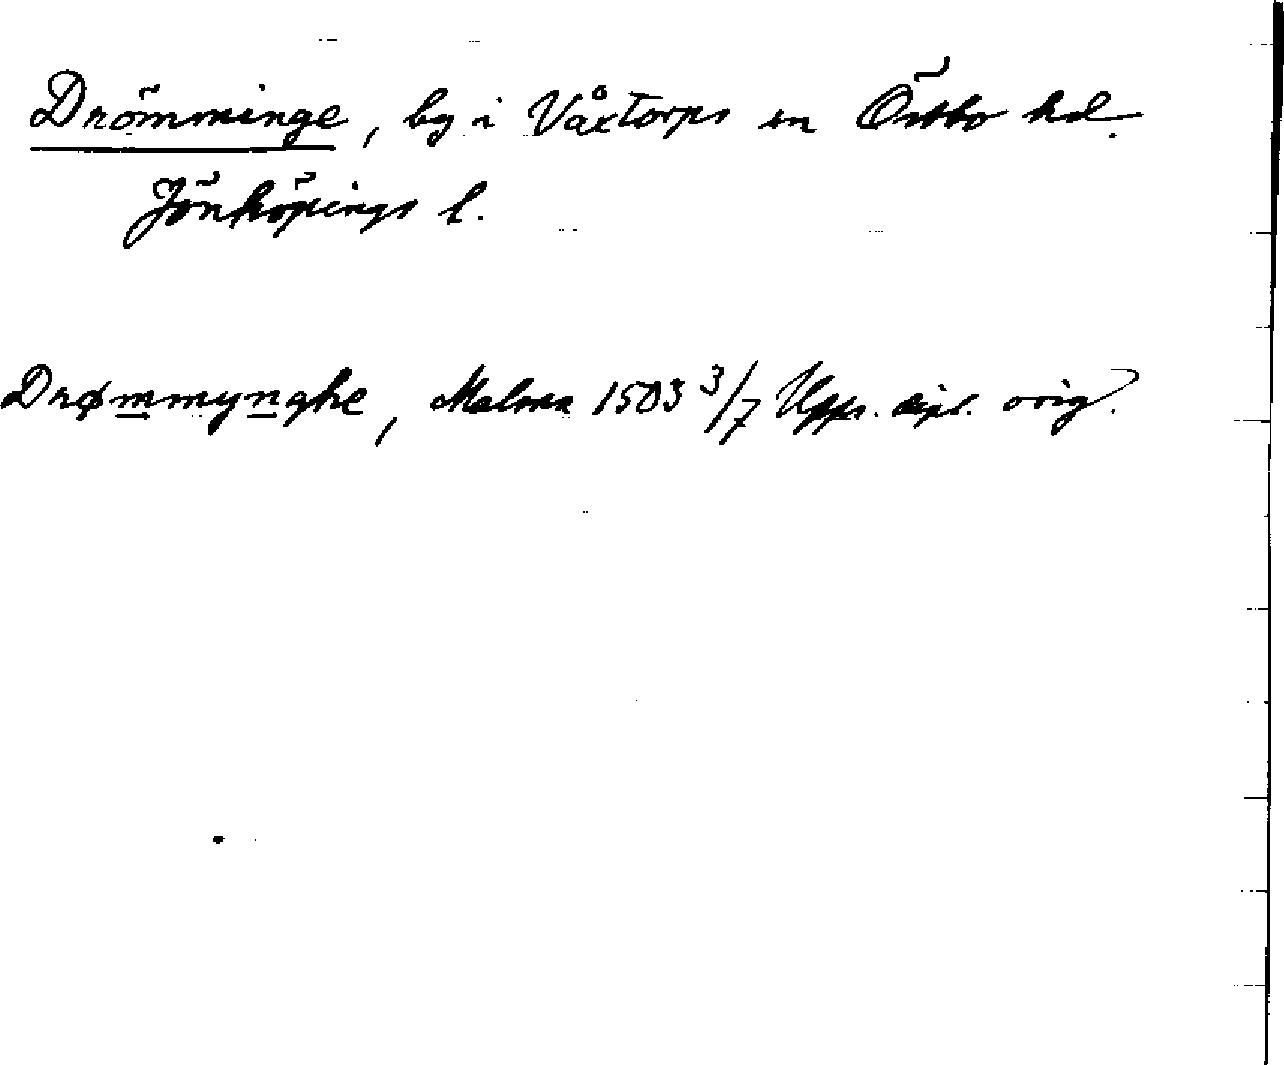 Drömminge, by i Våxtorps sn Östbo hd.
Jönköpings l.
Drømmynghe, 1503 3/7 Upps. dipl. orig.